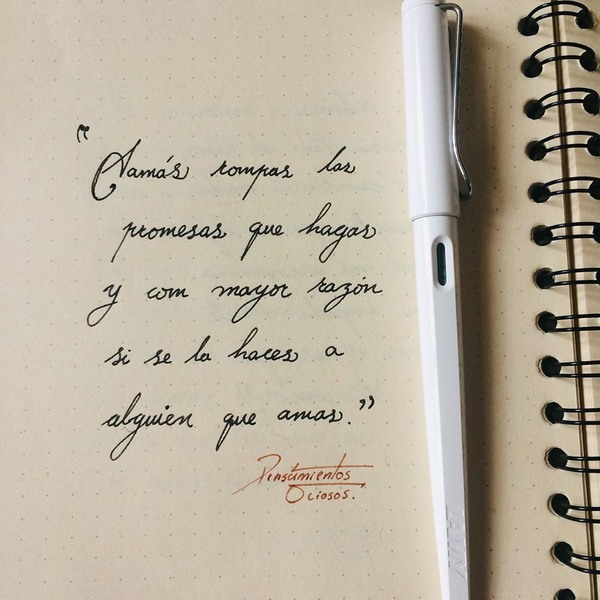 "Jamás rompas las
promesas que hagas
y con mayor razón
si se la haces a
alguien que amas."
Pensamientos
Ociosos.
LAMY